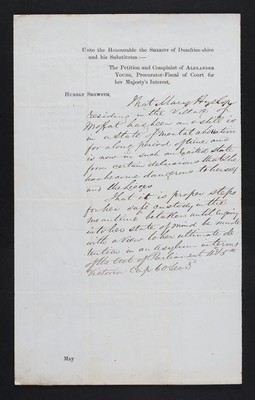 Unto the Honourable the Sheriff of Dumfries-shire
and his Substitutes :—
The Petition and Complaint of Alexander
Young, Procurator-Fiscal of Court for
her Majesty's Interest,
Humbly Sheweth,
That Mary
residing in the Village of
Moffat has been and still is
in a state of mental aberration
for a long period of time and
is now in such an excited state
from certain delusions that she
has become dangerous to herself
and the lieges
That it is proper steps
for her safe custody in the
meantime be taken until inquiry
into her state of mind be made
with a view to her ultimate de
tention in an asylum in terms
of the Act of Parliament
Victoria Cap. 60 Sec
May